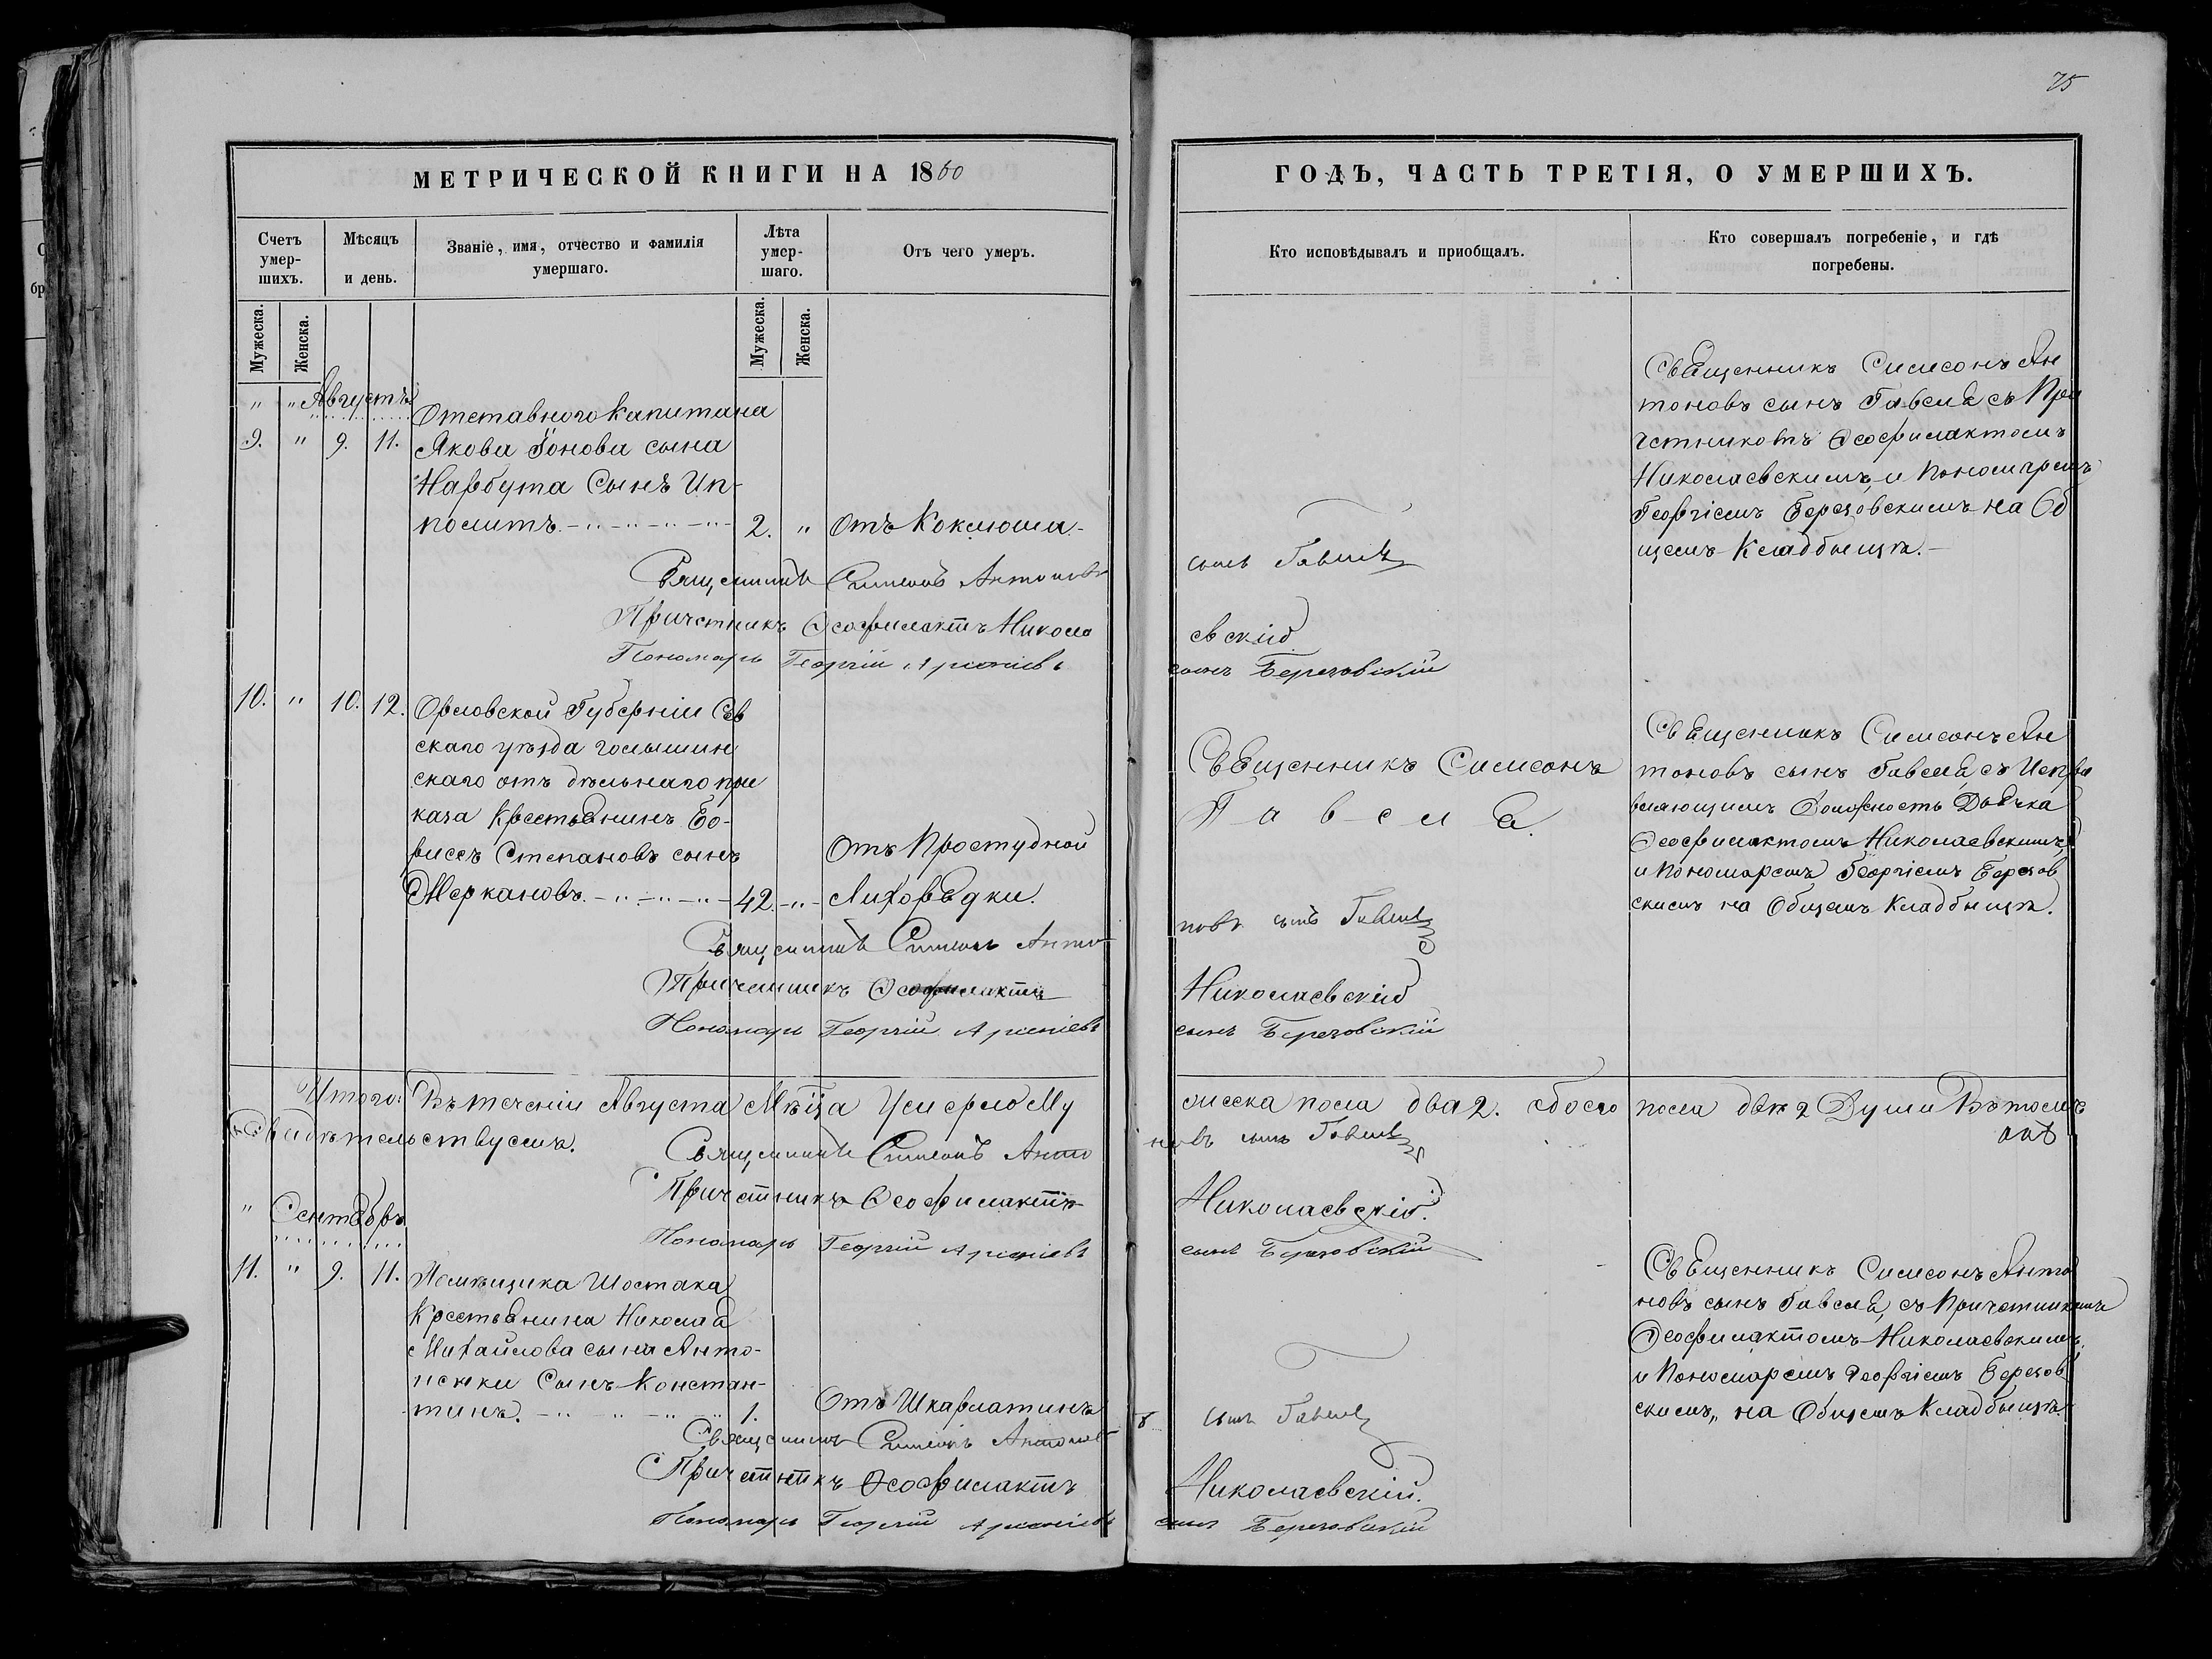 75
МЕТРИЧЕСКОЙ КНИГИ НА 1860
ГОДЪ, ЧАСТЬ ТРЕТІЯ, О УМЕРШИХЪ.
Счетъ умер-
шихъ.
Мѣсяцъ
и день.
Званіе, имя, отчество и фамилія
умершаго.
Лѣта
умер-
шаго.
Отъ чего умеръ.
Кто исповѣдывалъ и приобщалъ.
Кто совершалъ погребеніе, и гдѣ
погребены.
Мужеска.
Женска.
Мужеска.
Женска.
" " Августъ
9. " 9. 11.
Отставного Капитана
Якова Іонова сына
Нарбута Сынъ Ип-
политъ. 2. " Отъ Коклюша.
Священникъ Симеонъ Ан
тоновъ сынъ Гавеля съ При
четникомъ Ѳеофилактомъ
Николаевскимъ, и Пономаремъ
Георгіемъ Березовскимъ на Об
щемъ Кладбищѣ.
Священникъ Симеонъ Антоновъ сынъ Гавеля
Причетникъ Ѳеофилактъ Николаевскій
Пономарь Георгій Арсеніевъ сынъ Березовскій
10. " 10. 12.
Орловской Губерніи Сѣв
скаго уѣзда
скаго отъ дѣльнаго при
каза Крестьянинъ Бо-
рисъ Степановъ сынъ
Меркановъ. 42. "
Отъ Простудной
Лихорѣдки.
Священникъ Симеонъ
Гавеля.
Священникъ Симеонъ Ан
тоновъ сынъ Гавеля, съ Испра
вляющимъ Должность Дьячка
Ѳеофилактомъ Николаевскимъ,
и Пономаремъ Георгіемъ Березов
скимъ на Общемъ Кладбищѣ.
Священникъ Симеонъ Антоновъ сынъ Гавеля
Причетникъ Ѳеофилактъ Николаевскій
Пономарь Георгій Арсеніевъ сынъ Березовскій
Итого: Въ теченіи Августа Мѣсца Умерло Му
жеска пола два 2. обоего пола двѣ 2 Души Въ томъ
Свидѣтельствуемъ.
Священникъ Симеонъ Антоновъ сынъ Гавеля
Причетникъ Ѳеофилактъ Николаевскій.
Пономарь Георгій Арсеніевъ сынъ Березовскій
" Сентябрь
11. " 9. 11.
Помѣщика Шостака
Крестьянина Николая
Михайлова сына Анто-
ненки Сынъ Констан-
тинъ. 1. Отъ Шкарлатины
Священникъ Симеонъ Анто
новъ сынъ Гавеля, съ Причетникомъ
Ѳеофилактомъ Николаевскимъ,
и Пономаремъ Георгіемъ Березов
скимъ, на Общемъ Кладбищѣ
Священникъ Симеонъ Антоновъ сынъ Гавеля
Причетникъ Ѳеофилактъ Николаевскій.
Пономарь Георгій Арсеніевъ сынъ Березовскій